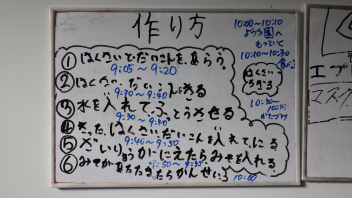 作り方
①はくさいでだいこんを、あらう。
9:05～9:20
②はくさい、だいこんをきる
9:20～9:30
③水を入れてふっとうさせる
9:30～9:40
④きったはくさい、だいこんを入れてにる
9:40～9:50
⑤ざいりょうがにえたらみそを入れる
⑥みそがあたたまったらかんせい！
10:00
10:00～10:10
ようち園へ
もっていく
10:10～10:30
はくさい
ちぎる
10:30～
かたづけ
エプ
マスク